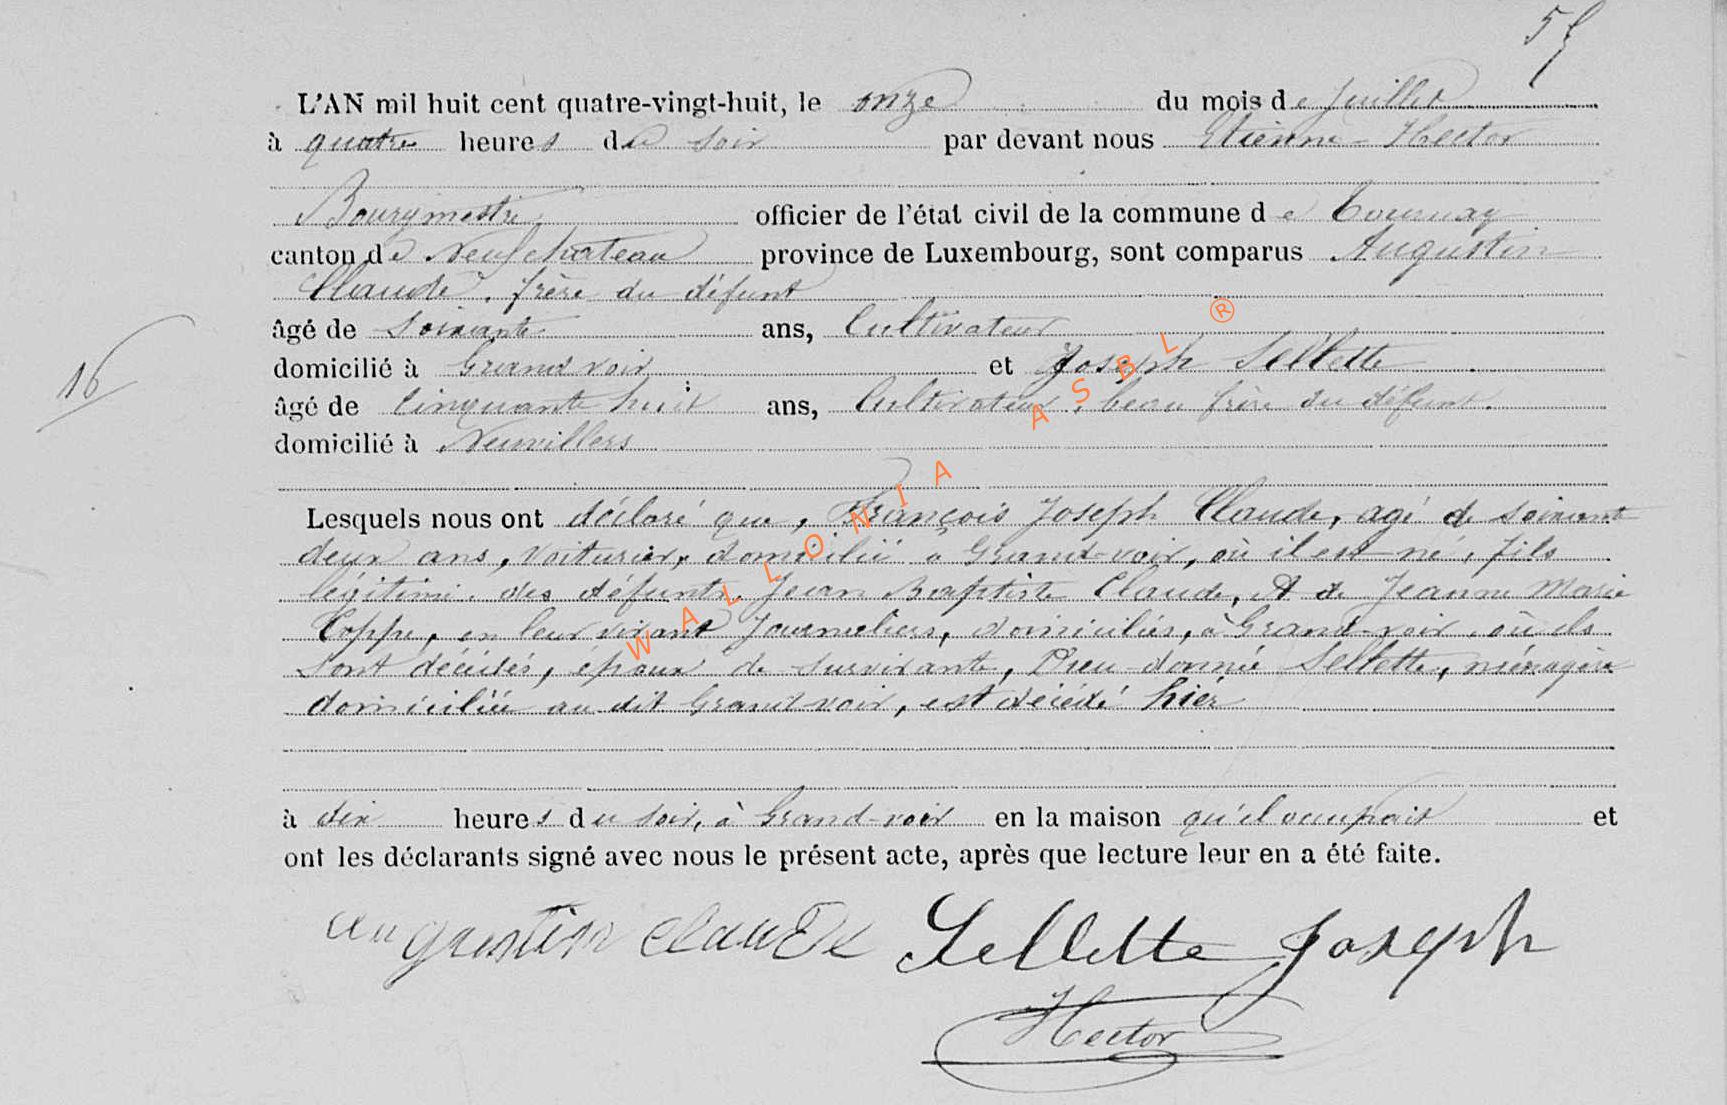 55
L'AN mil huit cent quatre-vingt-huit, le onze du mois de Juillet
à quatre heures du soir par devant nous Etienne Hector
Bourgmestre officier de l'état civil de la commune de Tournay
canton de Neufchateau province de Luxembourg, sont comparus Augustin
Claude, frère du défunt
âgé de soixante ans, Cultivateur
domicilié à Grandvoir et Joseph Sellette
16
âgé de Cinquante huit ans, Cultivateur, beau frère du défunt.
domicilié à Neuvillers
Lesquels nous ont déclaré que, François Joseph Claude, agé de soixante
deux ans, voiturier, domicilié à Grand-voir, où il est né, fils
légitime des défunts Jean Baptiste Claude, et de Jeanne Marie
Toppe, en leur vivant Journaliers, domiciliés, à Grand-voir, où ils
sont décédés, époux de survivante, Dieu-donnée Sellette, ménagère
domiciliée au dit Grandvoir, est décédé hier
à dix heures du soir, à Grand-voir en la maison qu'il occupait et
ont les déclarants signé avec nous le présent acte, après que lecture leur en a été faite.
Augustin Claude Sellette Joseph
Hector
WALLONIA ASBL ®